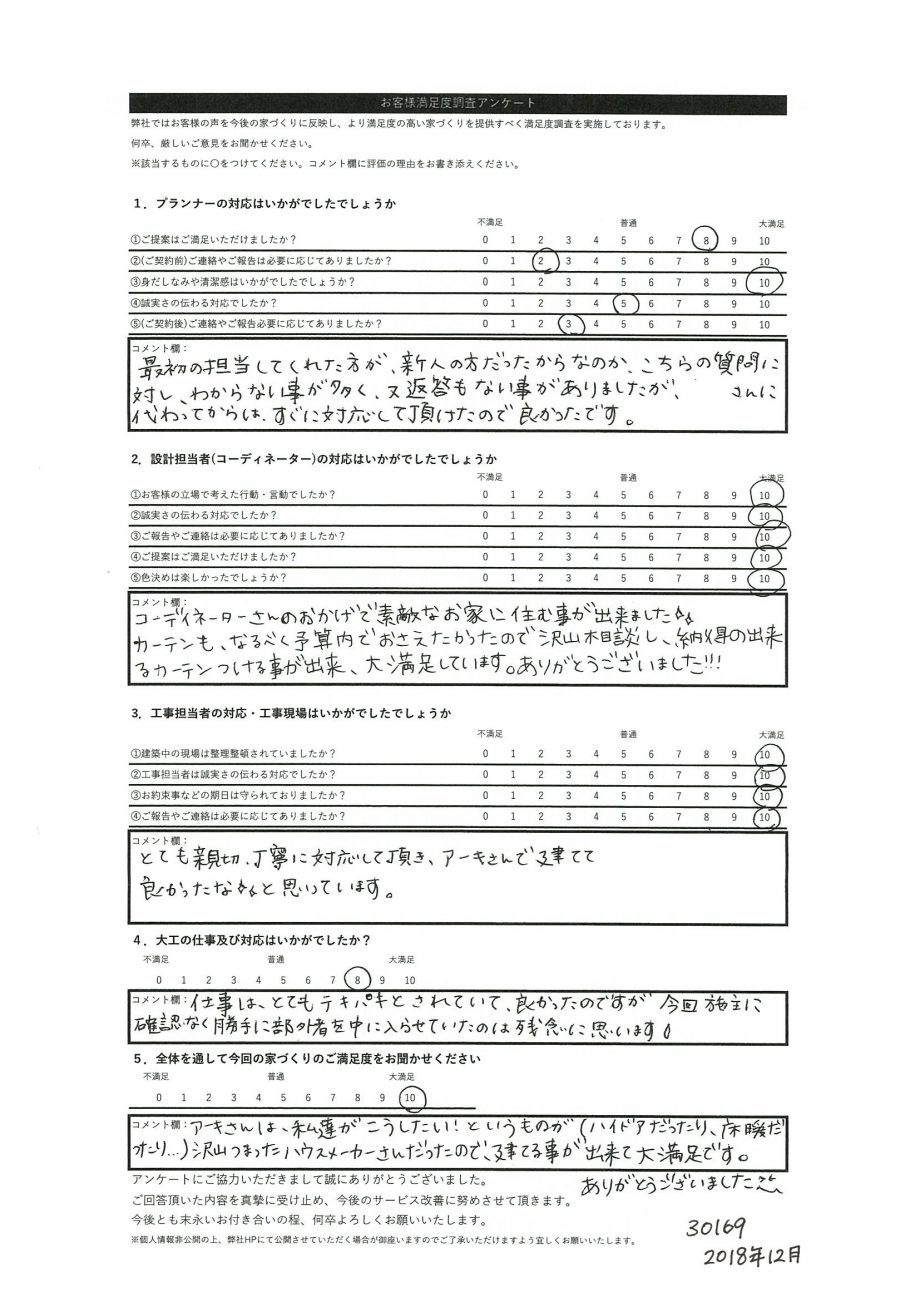 お客様満足度調査アンケート
弊社ではお客様の声を今後の家づくりに反映し、より満足度の高い家づくりを提供すべく満足度調査を実施しております。
何卒、厳しいご意見をお聞かせください。
※該当するものに〇をつけてください。コメント欄に評価の理由をお書き添えください。
1．プランナーの対応はいかがでしたでしょうか
不満足 普通 大満足
①ご提案はご満足いただけましたか？ 0 1 2 3 4 5 6 7 8 9 10
②(ご契約前)ご連絡やご報告は必要に応じてありましたか？ 0 1 2 3 4 5 6 7 8 9 10
③身だしなみや清潔感はいかがでしたでしょうか？ 0 1 2 3 4 5 6 7 8 9 10
④誠実さの伝わる対応でしたか？ 0 1 2 3 4 5 6 7 8 9 10
⑤(ご契約後)ご連絡やご報告必要に応じてありましたか？ 0 1 2 3 4 5 6 7 8 9 10
コメント欄：
最初の担当してくれた方が、新人の方だったからなのか、こちらの質問に
対し、わからない事が多く、又返答もない事がありましたが、 さんに
代わってからは、すぐに対応して頂けたので良かったです。
2．設計担当者(コーディネーター)の対応はいかがでしたでしょうか
不満足 普通 大満足
①お客様の立場で考えた行動・言動でしたか？ 0 1 2 3 4 5 6 7 8 9 10
②誠実さの伝わる対応でしたか？ 0 1 2 3 4 5 6 7 8 9 10
③ご報告やご連絡は必要に応じてありましたか？ 0 1 2 3 4 5 6 7 8 9 10
④ご提案はご満足いただけましたか？ 0 1 2 3 4 5 6 7 8 9 10
⑤色決めは楽しかったでしょうか？ 0 1 2 3 4 5 6 7 8 9 10
コメント欄：
コーディネーターさんのおかげで素敵なお家に住む事が出来ました
カーテンも、なるべく予算内でおさえたかったので沢山相談し、納得の出来
るカーテンつける事が出来、大満足しています。ありがとうございました!!!
3．工事担当者の対応・工事現場はいかがでしたでしょうか
不満足 普通 大満足
①建築中の現場は整理整頓されていましたか？ 0 1 2 3 4 5 6 7 8 9 10
②工事担当者は誠実さの伝わる対応でしたか？ 0 1 2 3 4 5 6 7 8 9 10
③お約束事などの期日は守られておりましたか？ 0 1 2 3 4 5 6 7 8 9 10
④ご報告やご連絡は必要に応じてありましたか？ 0 1 2 3 4 5 6 7 8 9 10
コメント欄：
とても親切、丁寧に対応して頂き、アーキさんで建てて
良かったなぁと思っています。
4．大工の仕事及び対応はいかがでしたか？
不満足 普通 大満足
0 1 2 3 4 5 6 7 8 9 10
コメント欄：仕事は、とてもテキパキとされていて、良かったのですが 今回施主に
確認なく勝手に部外者を中に入らせていたのは残念に思います。
5．全体を通して今回の家づくりのご満足度をお聞かせください
不満足 普通 大満足
0 1 2 3 4 5 6 7 8 9 10
コメント欄：アーキさんは、私達がこうしたい！というものが(ハイドアだったり、床暖だ
ったり…)沢山つまったハウスメーカーさんだったので、建てる事が出来て大満足です。
ありがとうございました
アンケートにご協力いただきまして誠にありがとうございました。
ご回答頂いた内容を真摯に受け止め、今後のサービス改善に努めさせて頂きます。
今後とも末永いお付き合いの程、何卒よろしくお願いいたします。
※個人情報非公開の上、弊社HPにて公開させていただく場合が御座いますのでご了承いただけますよう宜しくお願いいたします。
30169
2018年12月